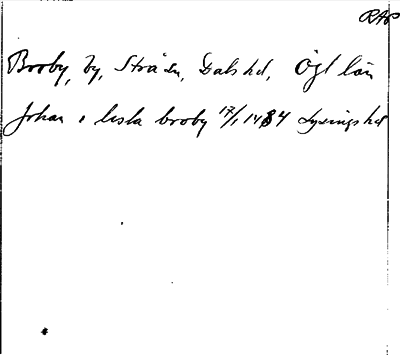 RAP
Broby, by, Strå sn, Dals hd, Ögl län
Johan i lisla broby 17/1 1484 Lysings hd